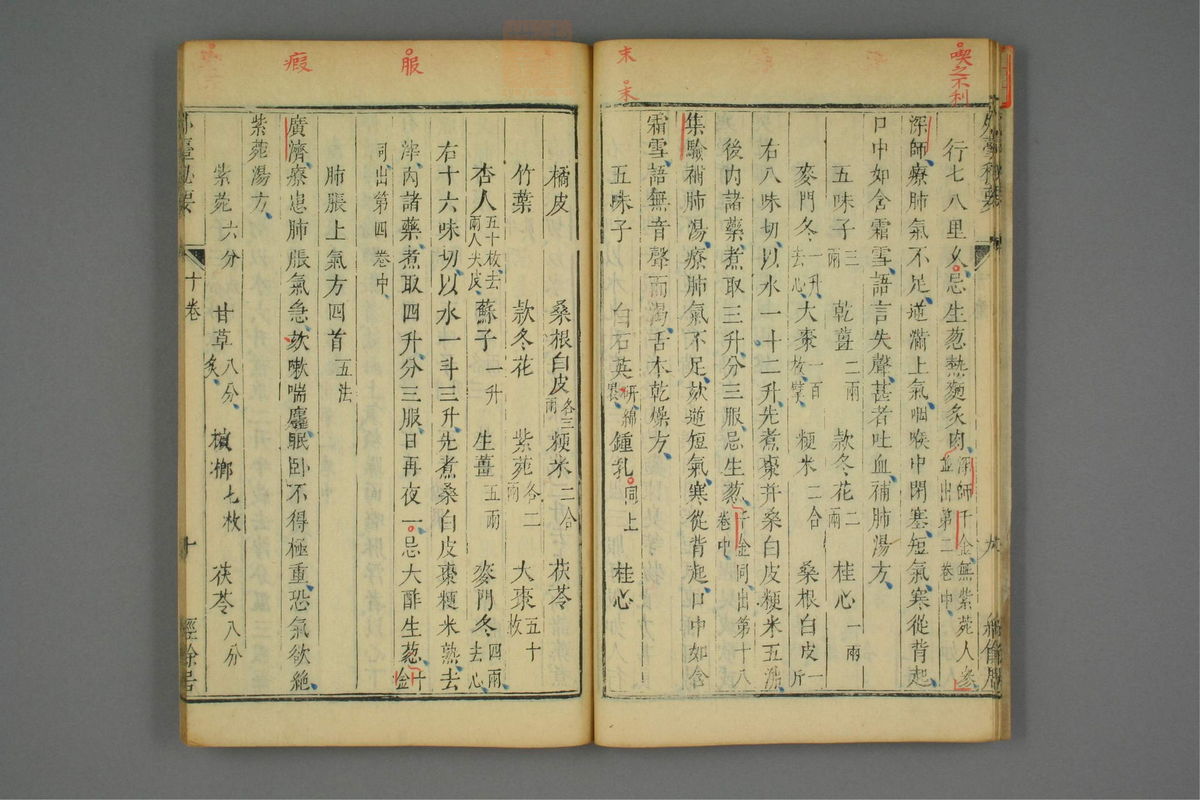 喫之不利
末
末
行七八里久忌生葱熱麵炙肉深師千金無紫菀人參並出第二卷中
深師療肺氣不足逆滿上氣咽喉中閉塞短氣寒從背起
口中如含霜雪語言失聲甚者吐血補肺湯方
五味子三兩 乾薑二兩 款冬花二兩 桂心一兩
麥門冬一升去心 大棗一百枚擘 粳米二合 桑根白皮一斤
右八味切以水一十二升先煮棗并桑白皮粳米五沸
後內諸藥煮取三升分三服忌生葱千金同出第十八卷中
集驗補肺湯療肺氣不足欬逆短氣寒從背起口中如含
霜雪語無音聲而渴舌本乾燥方
五味子 白石英研綿裹 鍾乳同上 桂心
服
瘕
橘皮 桑根白皮各三兩 粳米二合 茯苓
竹葉 款冬花 紫菀各二兩 大棗五十枚
杏人五十枚去兩人尖皮 蘇子一升 生薑五兩 麥門冬四兩去心
右十六味切以水一斗三升先煮桑白皮棗粳米熟去
滓內諸藥煮取四升分三服日再夜一忌大酢生葱千金
同出第四卷中
肺脹上氣方四首五法
廣濟療患肺脹氣急欬嗽喘麤眠臥不得極重恐氣欲絕
紫菀湯方
紫菀六分 甘草八分炙 檳榔七枚 茯苓八分
外臺秘要 十卷 十 經餘居